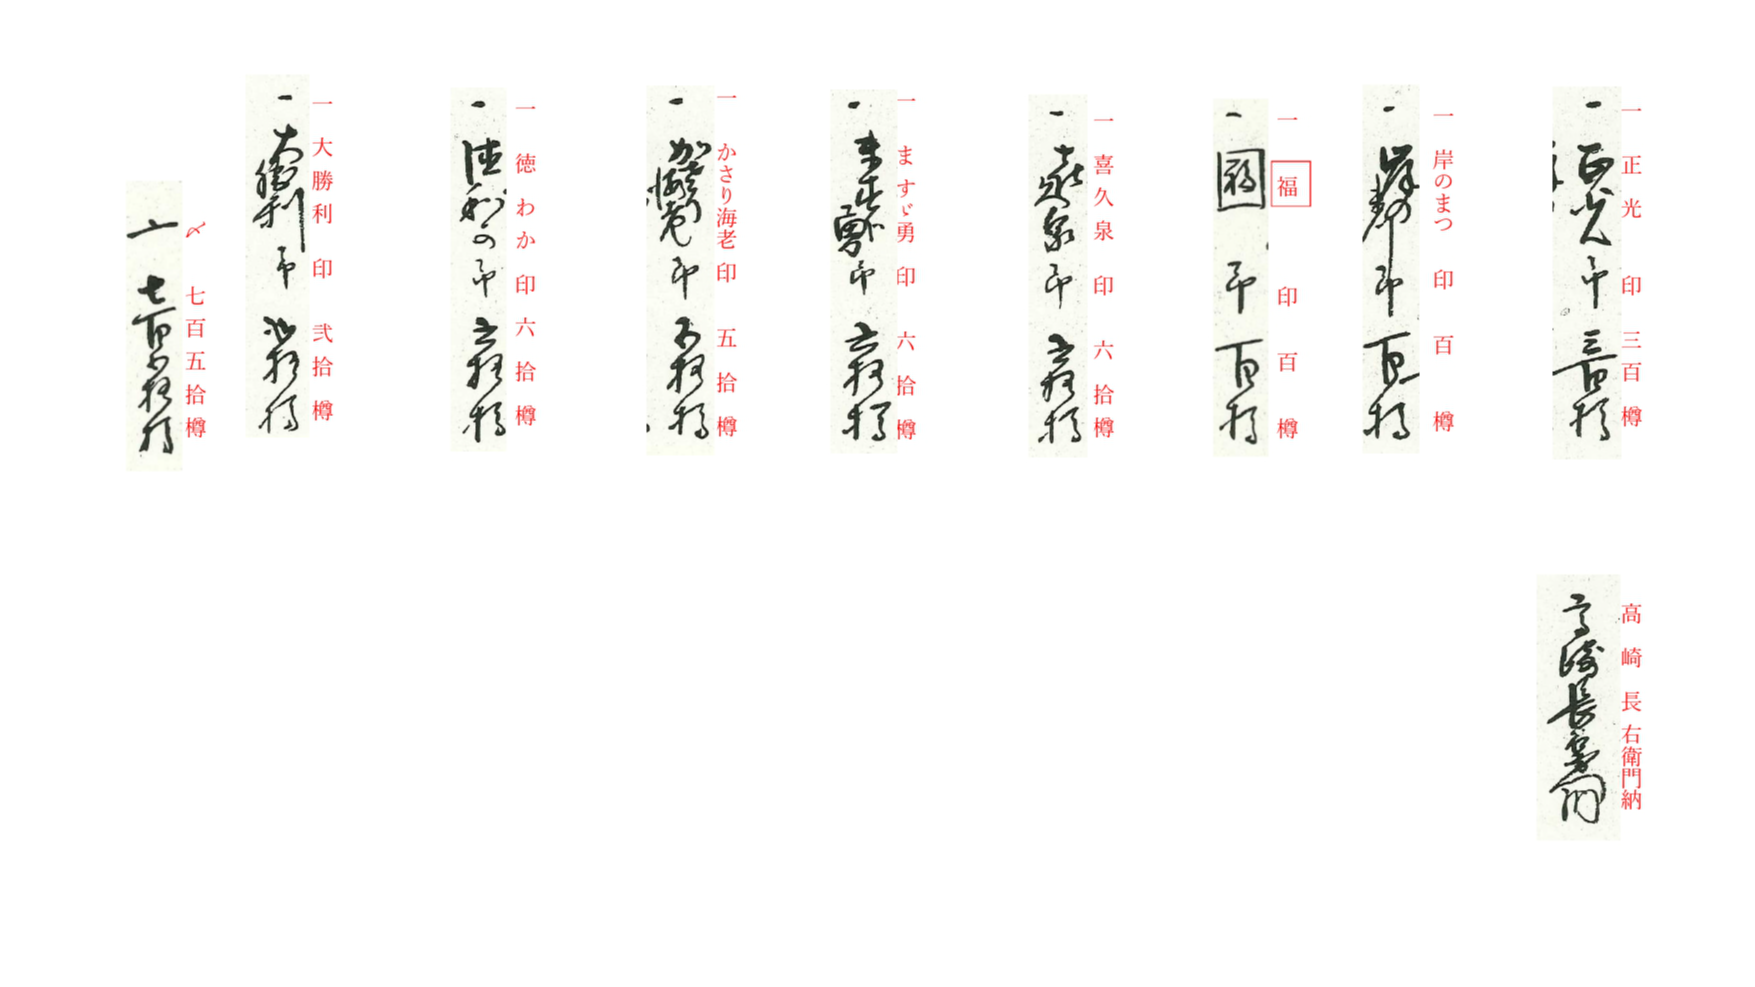 一 正光 印 三百樽
高崎長右衛門納
一 岸のまつ 印 百樽
一 福 印 百樽
一 喜久泉 印 六拾樽
一 ますゞ勇 印 六拾樽
一 かさり海老 印 五拾樽
一 徳わか 印 六拾樽
一 大勝利 印 弐拾樽
〆 七百五拾樽